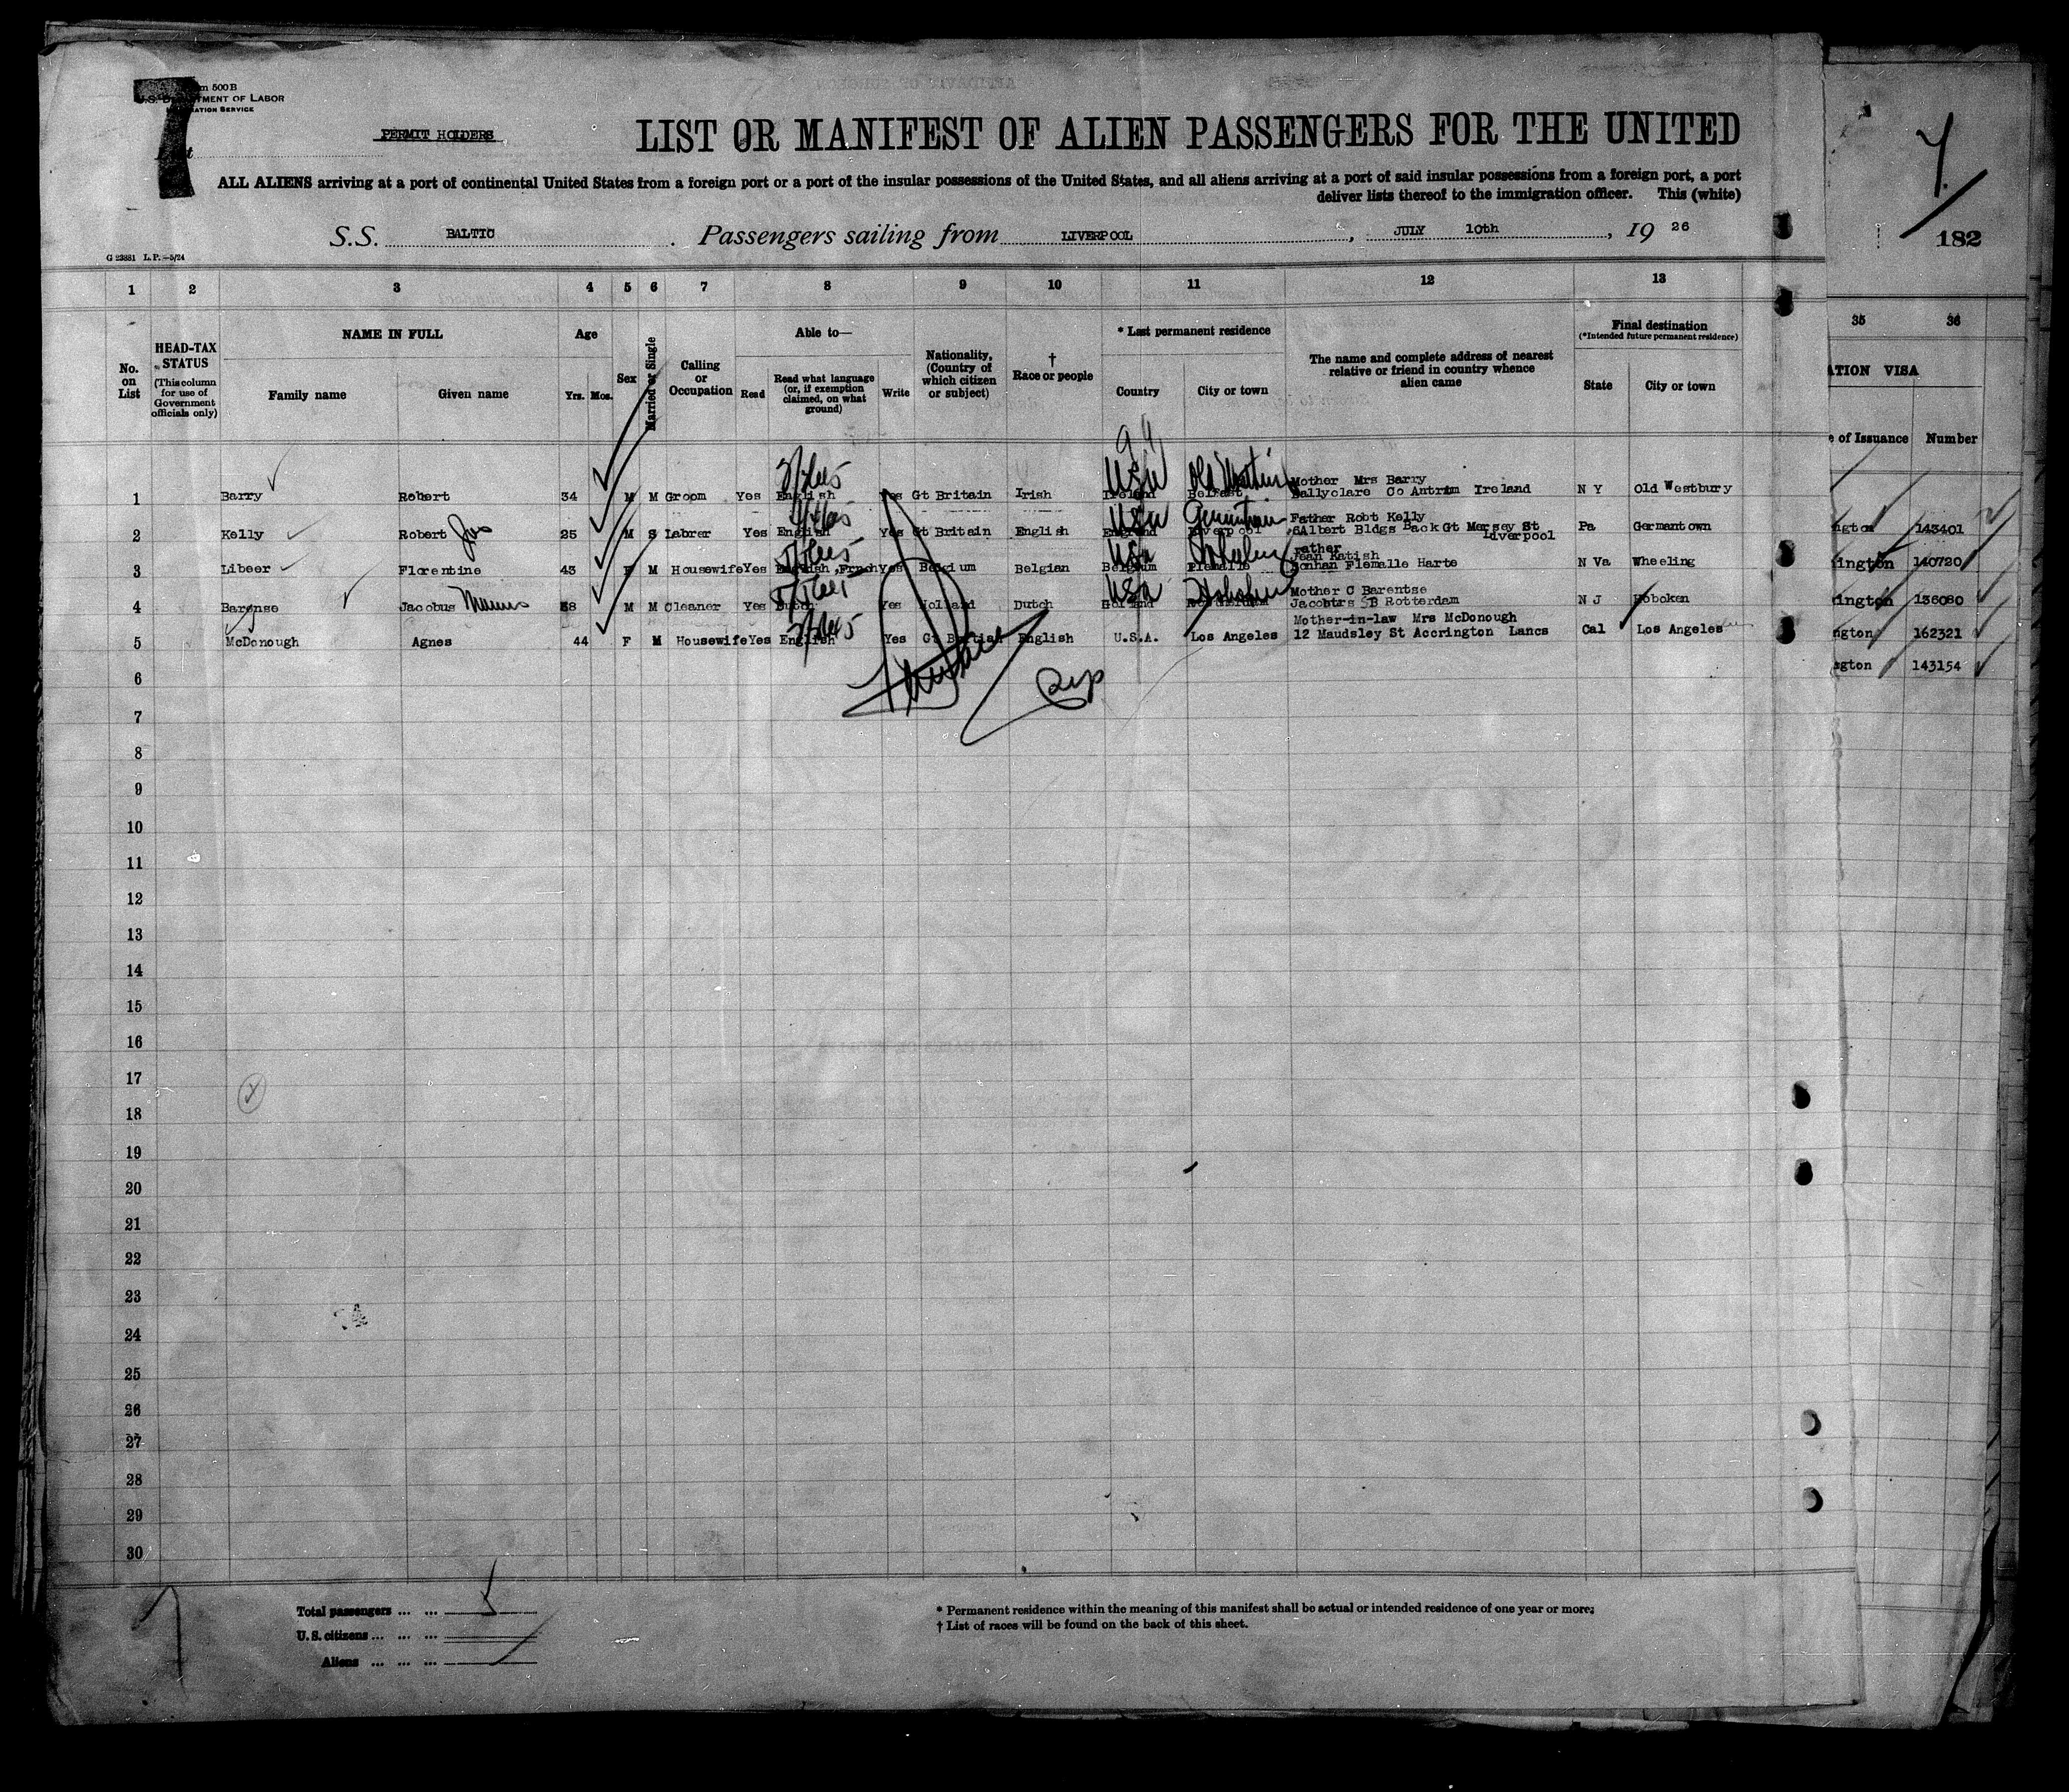 500 B
U.S. DEPARTMENT OF LABOR
PERMIT HOLDERS
LIST OR MANIFEST OF ALIEN PASSENGERS FOR THE UNITED
ALL ALIENS arriving at a port of continental United States from a foreign port or a port of the insular possessions of the United States, and all aliens arriving at a port of said insular possessions from a foreign port, a port
deliver lists thereof to the immigration officer. This (white)
S.S. BALTIC . Passengers sailing from LIVERPOOL , JULY 10th , 19 26
182
G 23881 L.P.—5/24
1 2 3 4 5 6 7 8 9 10 11 12 13
35 36
No. on List
HEAD-TAX STATUS
(This column for use of Government officials only)
NAME IN FULL
Family name Given name
Age
Yrs. Mos.
Sex
Married or Single
Calling or Occupation
Able to—
Read
Read what language (or, if exemption claimed, on what ground)
Write
Nationality, (Country of which citizen or subject)
† Race or people
* Last permanent residence
Country City or town
The name and complete address of nearest relative or friend in country whence alien came
Final destination
(*Intended future permanent residence)
State City or town
VISA
of Issuance Number
Mother Mrs Barry
1 Barry Robert 34 M M Groom Yes English Yes Gt Britain Irish USA Ireland Belfast Ballyclare Co Antrim Ireland N Y Old Westbury
Father Robt Kelly
2 Kelly Robert Jas 25 M S Labrer Yes English Yes Gt Britain English USA England Albert Bldgs Back Gt Mersey St Liverpool Pa Germantown 143401
Father
3 Libeer Florentine 43 F M Housewife Yes English, Frnch Yes Belgium Belgian USA Belgium Flemalle Jonhan Flemalle Harte N Va Wheeling 140720
Mother C Barentse
4 Jacobus M M Cleaner Yes Dutch Yes Holland Dutch USA Rotterdam N J Hoboken 136080
Mother-in-law Mrs McDonough
5 McDonough Agnes 44 F M Housewife Yes English Yes English U.S.A. Los Angeles 12 Maudsley St Accrington Lancs Cal Los Angeles 162321
6 143154
7
8
9
10
11
12
13
14
15
16
17
18
19
20
21
22
23
24
25
26
27
28
29
30
Total passengers ... ... 5
U.S. citizens ... ... ...
Aliens ... ... ...
* Permanent residence within the meaning of this manifest shall be actual or intended residence of one year or more.
† List of races will be found on the back of this sheet.